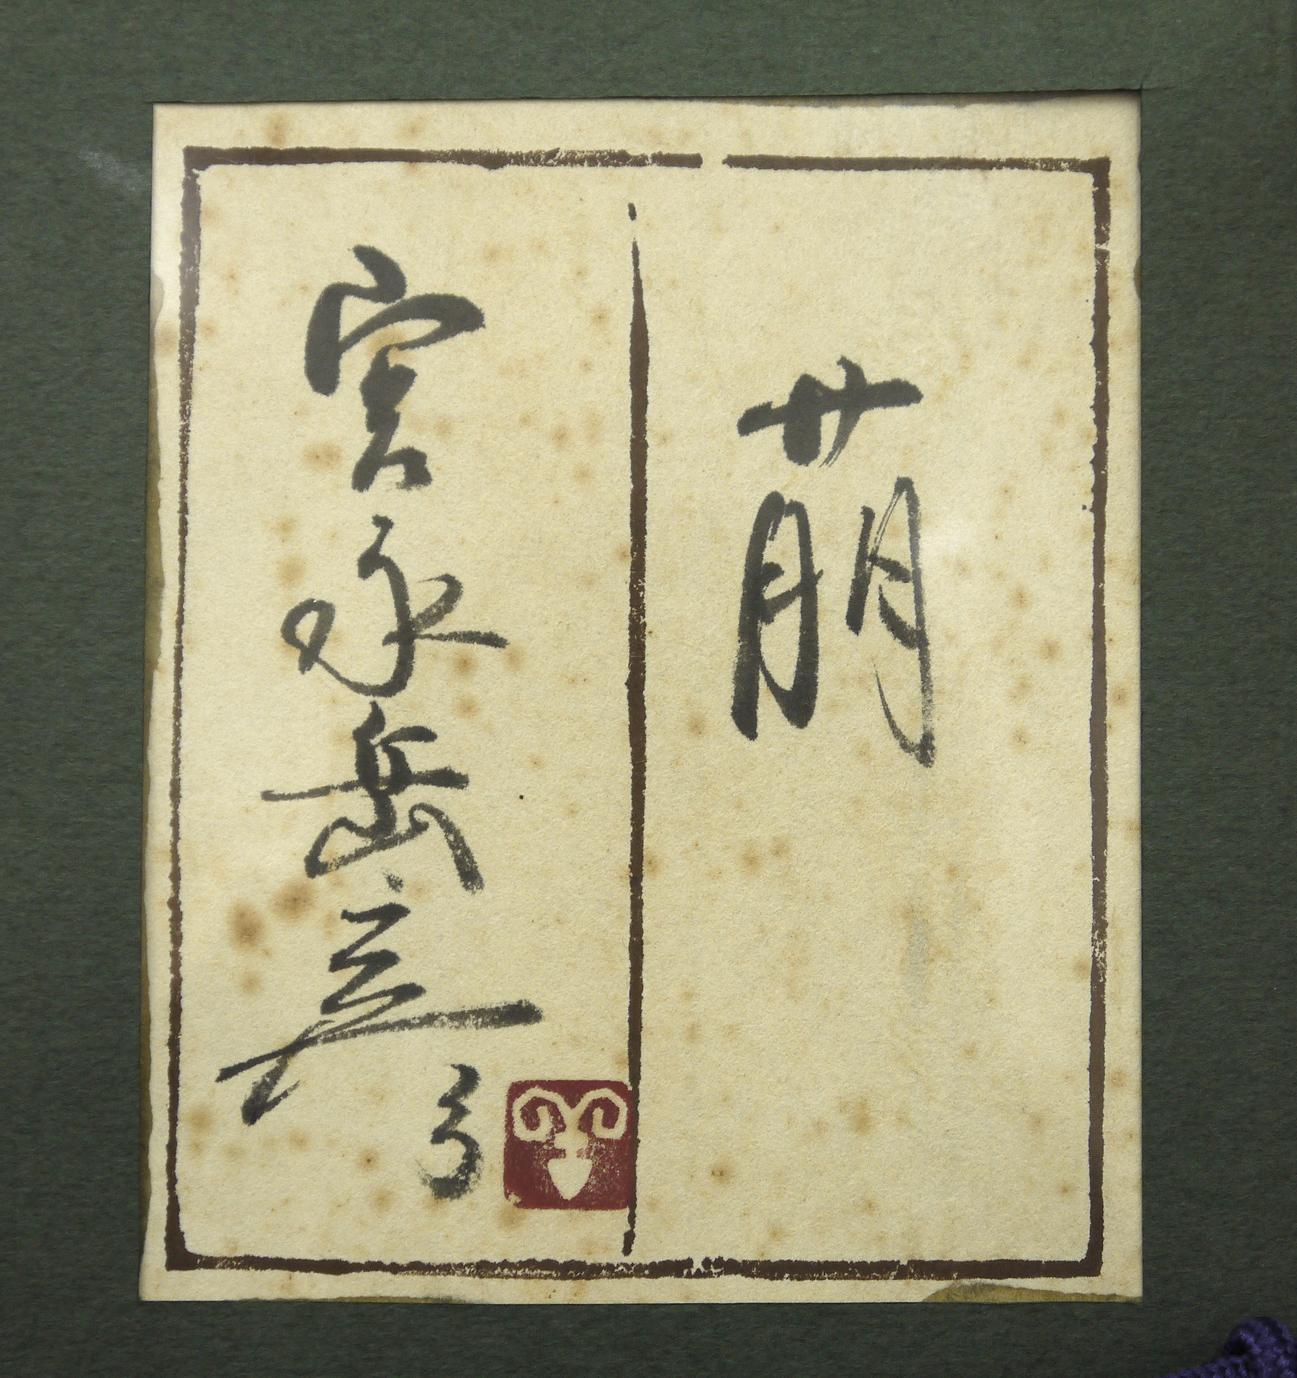 萌
宮永岳彦